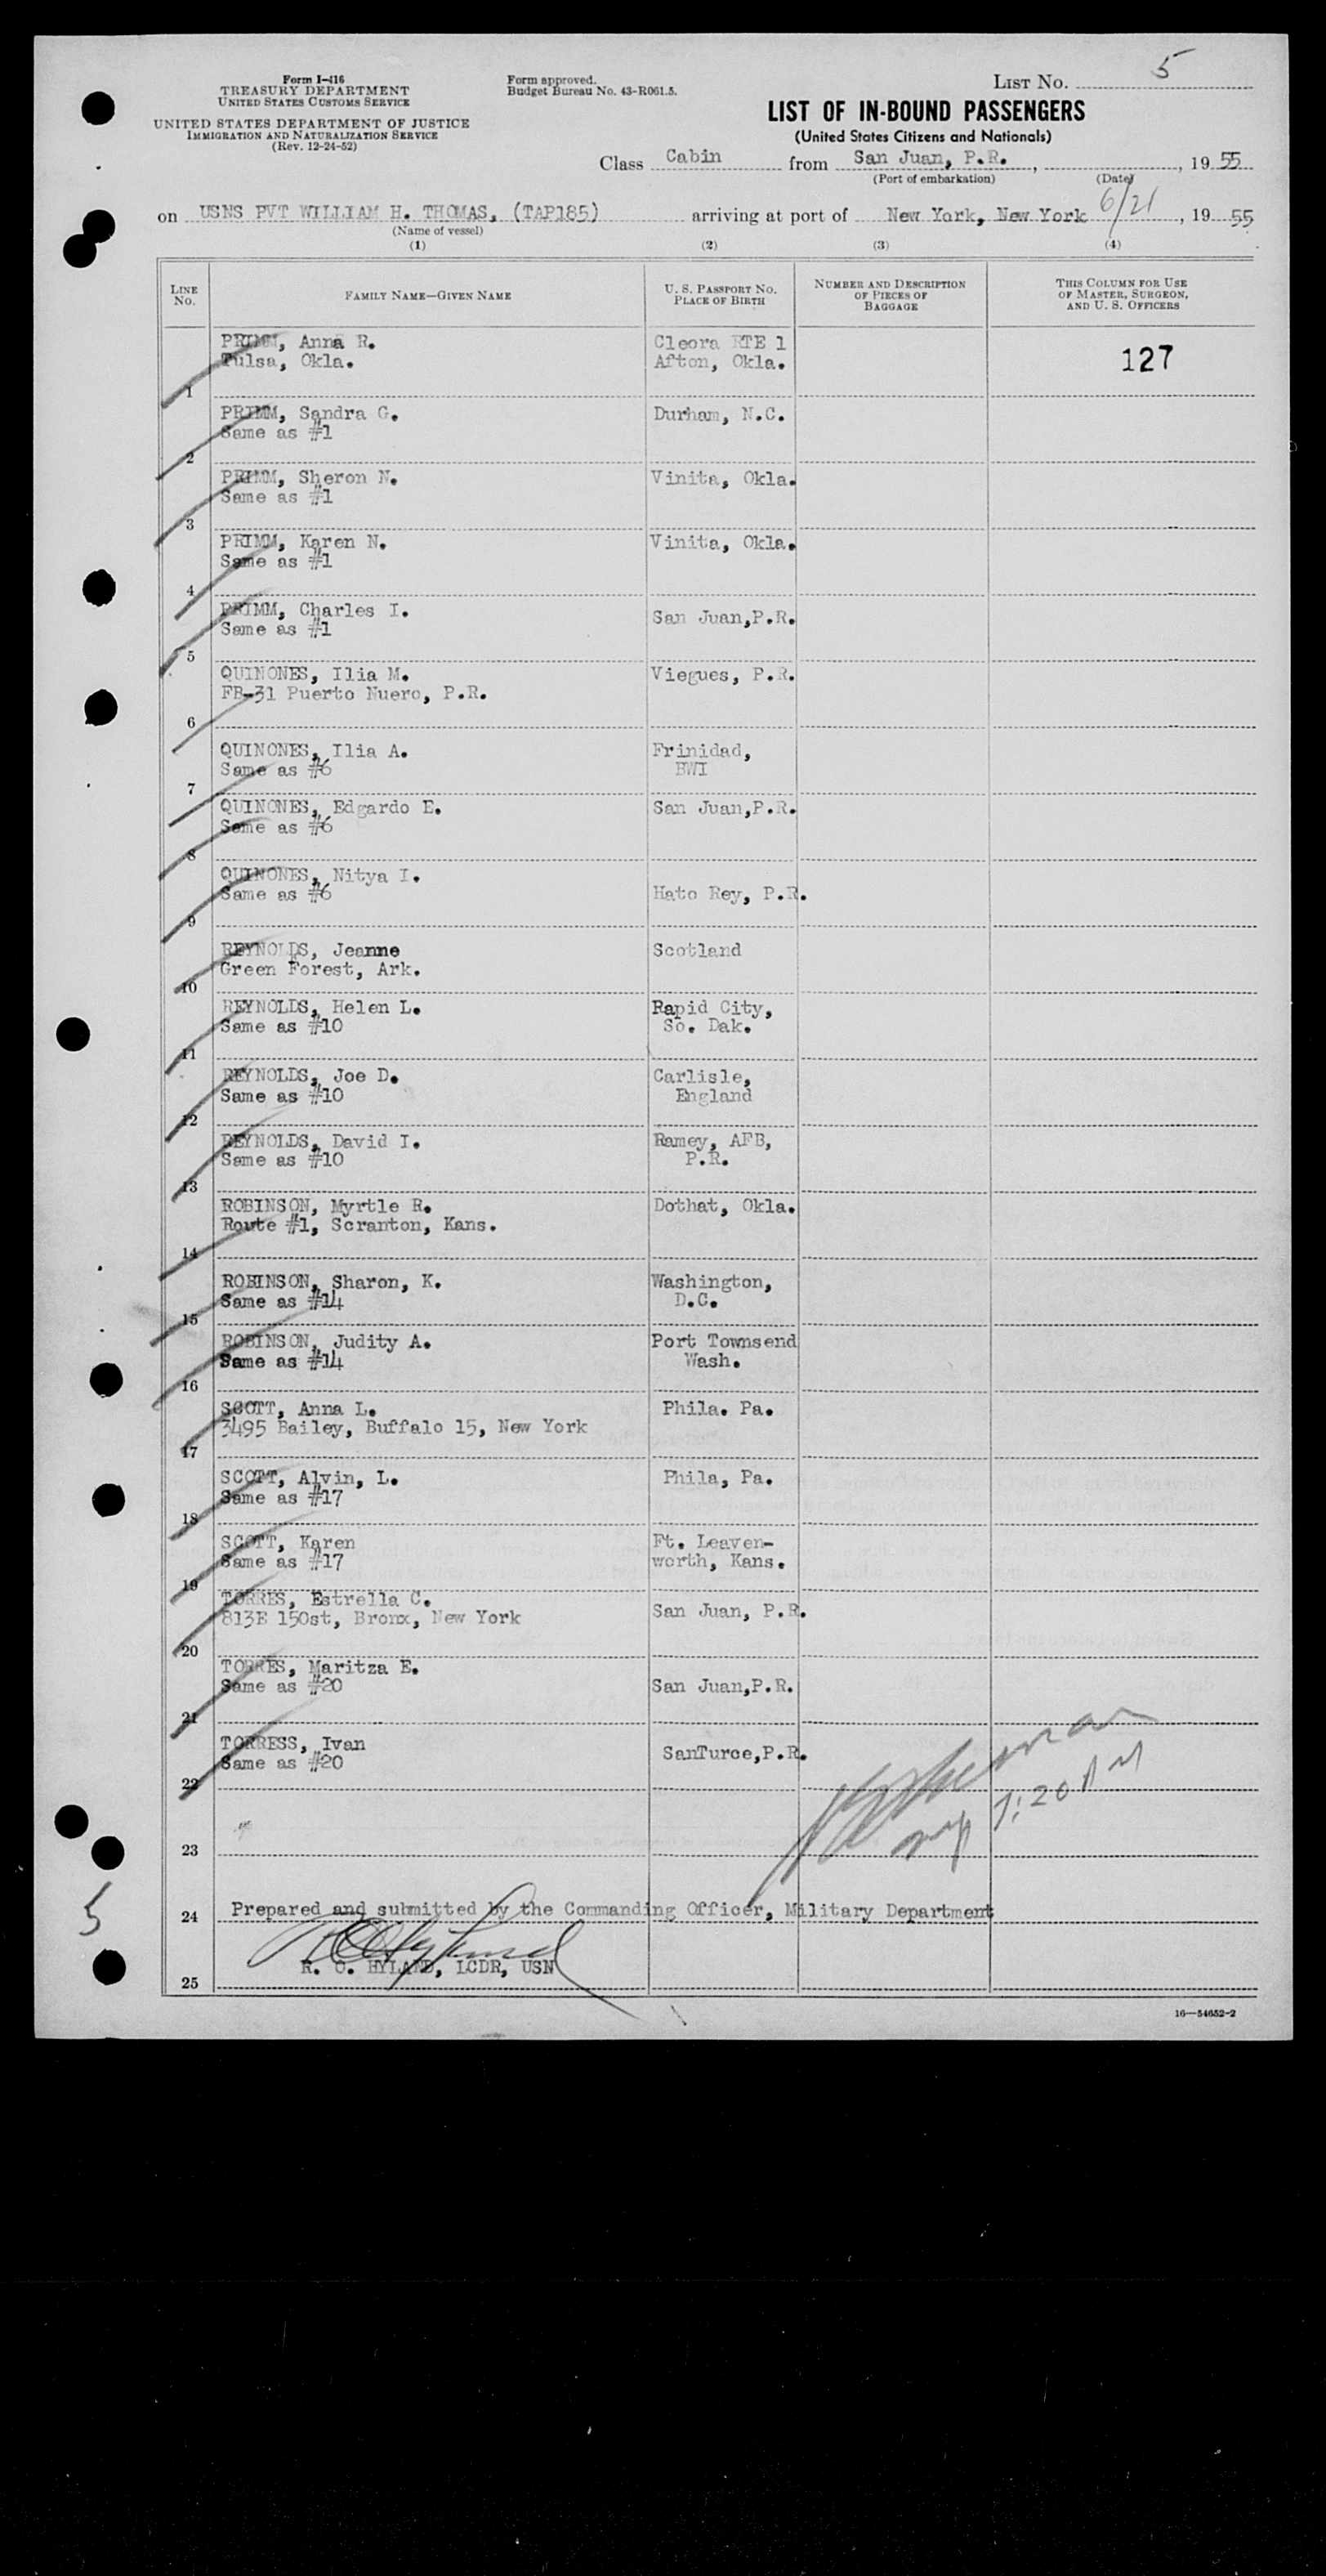 Form I-416
TREASURY DEPARTMENT
UNITED STATES CUSTOMS SERVICE
UNITED STATES DEPARTMENT OF JUSTICE
IMMIGRATION AND NATURALIZATION SERVICE
(Rev. 12-24-52)
Form approved.
Budget Bureau No. 43-R061.5.
LIST NO. 5
LIST OF IN-BOUND PASSENGERS
(United States Citizens and Nationals)
Class Cabin from San Juan, P.R., , 19 55
(Port of embarkation) (Date)
on USNS PVT WILLIAM H. THOMAS, (TAP185) arriving at port of New York, New York 6/21, 19 55
(Name of vessel)
(1) (2) (3) (4)
LINE NO. FAMILY NAME—GIVEN NAME U. S. PASSPORT NO. PLACE OF BIRTH NUMBER AND DESCRIPTION OF PIECES OF BAGGAGE THIS COLUMN FOR USE OF MASTER, SURGEON, AND U. S. OFFICERS
PRIMM, Anna R. Cleora RTE 1
Tulsa, Okla. Afton, Okla. 127
1
PRIMM, Sandra G. Durham, N.C.
Same as #1
2
PRIMM, Sheron N. Vinita, Okla.
Same as #1
3
PRIMM, Karen N. Vinita, Okla.
Same as #1
4
PRIMM, Charles I. San Juan,P.R.
Same as #1
5
QUINONES, Ilia M. Viegues, P.R.
FB-31 Puerto Nuero, P.R.
6
QUINONES, Ilia A. Frinidad,
Same as #6 BWI
7
QUINONES, Edgardo E. San Juan,P.R.
Same as #6
8
QUINONES, Nitya I.
Same as #6 Hato Rey, P.R.
9
REYNOLDS, Jeanne Scotland
Green Forest, Ark.
10
REYNOLDS, Helen L. Rapid City,
Same as #10 So. Dak.
11
REYNOLDS, Joe D. Carlisle,
Same as #10 England
12
REYNOLDS, David I. Ramey, AFB,
Same as #10 P.R.
13
ROBINSON, Myrtle R. Dothat, Okla.
Route #1, Scranton, Kans.
14
ROBINSON, Sharon, K. Washington,
Same as #14 D.C.
15
ROBINSON, Judity A. Port Townsend
Same as #14 Wash.
16
SCOTT, Anna L. Phila. Pa.
3495 Bailey, Buffalo 15, New York
17
SCOTT, Alvin, L. Phila, Pa.
Same as #17
18
SCOTT, Karen Ft. Leaven-
Same as #17 worth, Kans.
19
TORRES, Estrella C. San Juan, P.R.
813E 150st, Bronx, New York
20
TORRES, Maritza E.
Same as #20 San Juan,P.R.
21
TORRESS, Ivan SanTurce,P.R.
Same as #20
22
1:20 PM
23
Prepared and submitted by the Commanding Officer, Military Department
24
5
R. O. HYLAND, LCDR, USN
25
16—54652-2